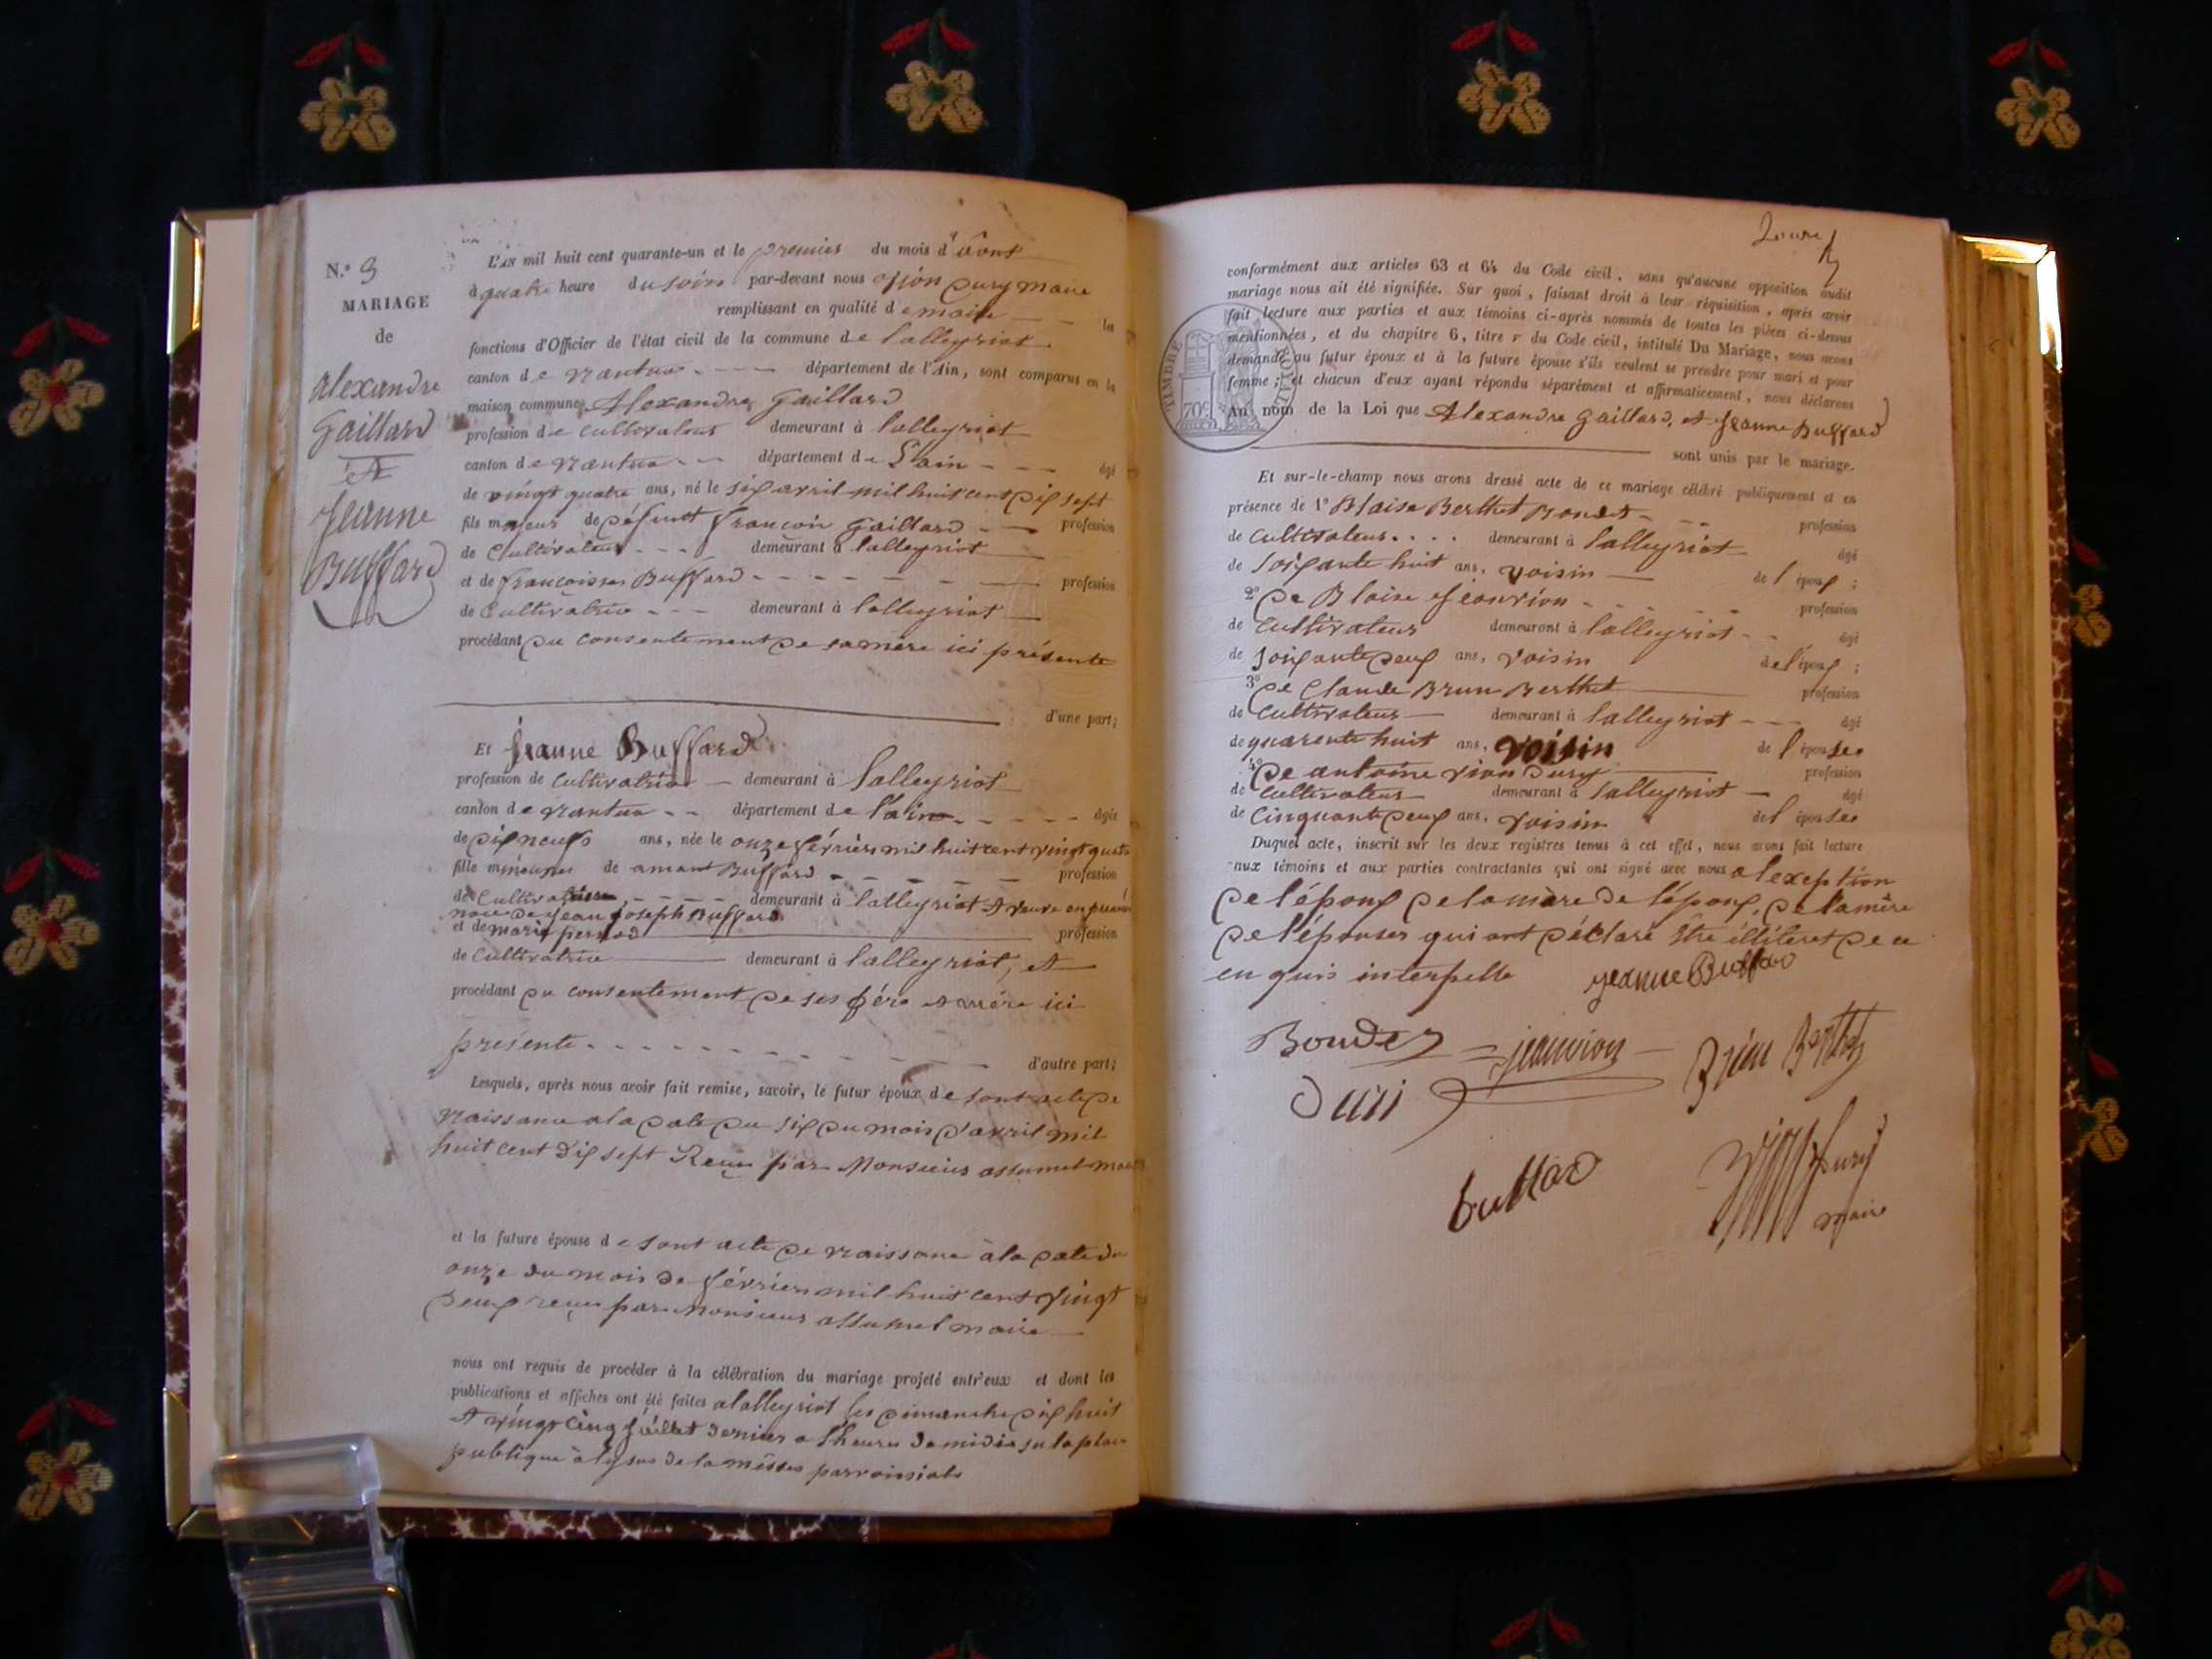 N.º 9
MARIAGE
de
alexandre
Gaillard
et
Jeanne
Buffard
L'AN mil huit cent quarante-un et le premier du mois d'âout
à quatre heure du soir par-devant nous vion dury maire
remplissant en qualité de maire les
fonctions d'Officier de l'état civil de la commune de lalleyriat
canton de nantua département de l'Ain, sont comparus en la
maison commune Alexandre Gaillard
profession de cultivateur demeurant à lalleyriat
canton de nantua département de l'ain âgé
de vingt quatre ans, né le six avril mil huit cent dix sept
fils majeur de défunt françois Gaillard profession
de Cultivateur demeurant à lalleyriat
et de françoisse Buffard profession
de Cultivatrice demeurant à lalleyriat
procédant du consentement de sa mère ici présente
d'une part;
Et Jeanne Buffard
profession de cultivatrice demeurant à lalleyriat
canton de nantua département de l'ain âgée
de dix neuf ans, née le onze février mil huit cent vingt quatre
fille mineure de amant Buffard profession
de Cultivateur demeurant à lalleyriat et veuve en premier
noce de jean joseph Buffard
et de marie pernod profession
de cultivatrice demeurant à lalleyriat, et
procédant du consentement de ses père et mère ici
présente
d'autre part;
Lesquels, après nous avoir fait remise, savoir, le futur époux de sont acte de
naissance a la date du six du mois d'avril mil
huit cent dix sept Reçue par Monsieur assumel maire
et la future épouse de sont acte de naissance à la date du
onze du mois de février mil huit cent vingt
deux reçue par Monsieur assumel maire
nous ont requis de procéder à la célébration du mariage projeté entr'eux et dont les
publications et affiches ont été faites a lalleyriat les dimanche dix huit
et vingt cinq juillet dernier a l'heure de midi su la place
publique à lysus de la messes parroissiale
conformément aux articles 63 et 64 du Code civil, sans qu'aucune opposition audit
mariage nous ait été signifiée. Sur quoi, faisant droit à leur réquisition, après avoir
fait lecture aux parties et aux témoins ci-après nommés de toutes les pièces ci-dessus
mentionnées, et du chapitre 6, titre v du Code civil, intitulé Du Mariage, nous avons
demandé au futur époux et à la future épouse s'ils veulent se prendre pour mari et pour
femme; et chacun d'eux ayant répondu séparément et affirmativement, nous déclarons
TIMBRE ROYAL
70c
Au nom de la Loi que Alexandre Gaillard, et Jeanne Buffard
sont unis par le mariage.
Et sur-le-champ nous avons dressé acte de ce mariage célébré publiquement et en
présence de 1º Blaise Berthet Bondet profession
de cultivateur demeurant à lalleyriat âgé
de soixante huit ans, voisin de l'époux;
2º de Blaise Jeanvion profession
de cultivateur demeurant à lalleyriat âgé
de soixante deux ans, voisin de l'époux;
3º de Claude Brun Berthet profession
de cultivateur demeurant à lalleyriat âgé
de quarente huit ans, voisin de l'épouse
4º de antoine vion Dury profession
de cultivateur demeurant à lalleyriat âgé
de cinquante deux ans, voisin de l'épouse
Duquel acte, inscrit sur les deux registres tenus à cet effet, nous avons fait lecture
aux témoins et aux parties contractantes qui ont signé avec nous a lexeption
de l'époux de la mère de l'époux, de la mère
de l'épouses qui ont déclaré être illiteret de ce
en quis interpelle Jeanne Buffard
Boudet jeanvion Brun Berthet
Duri
buffard
Vion Dury
maire